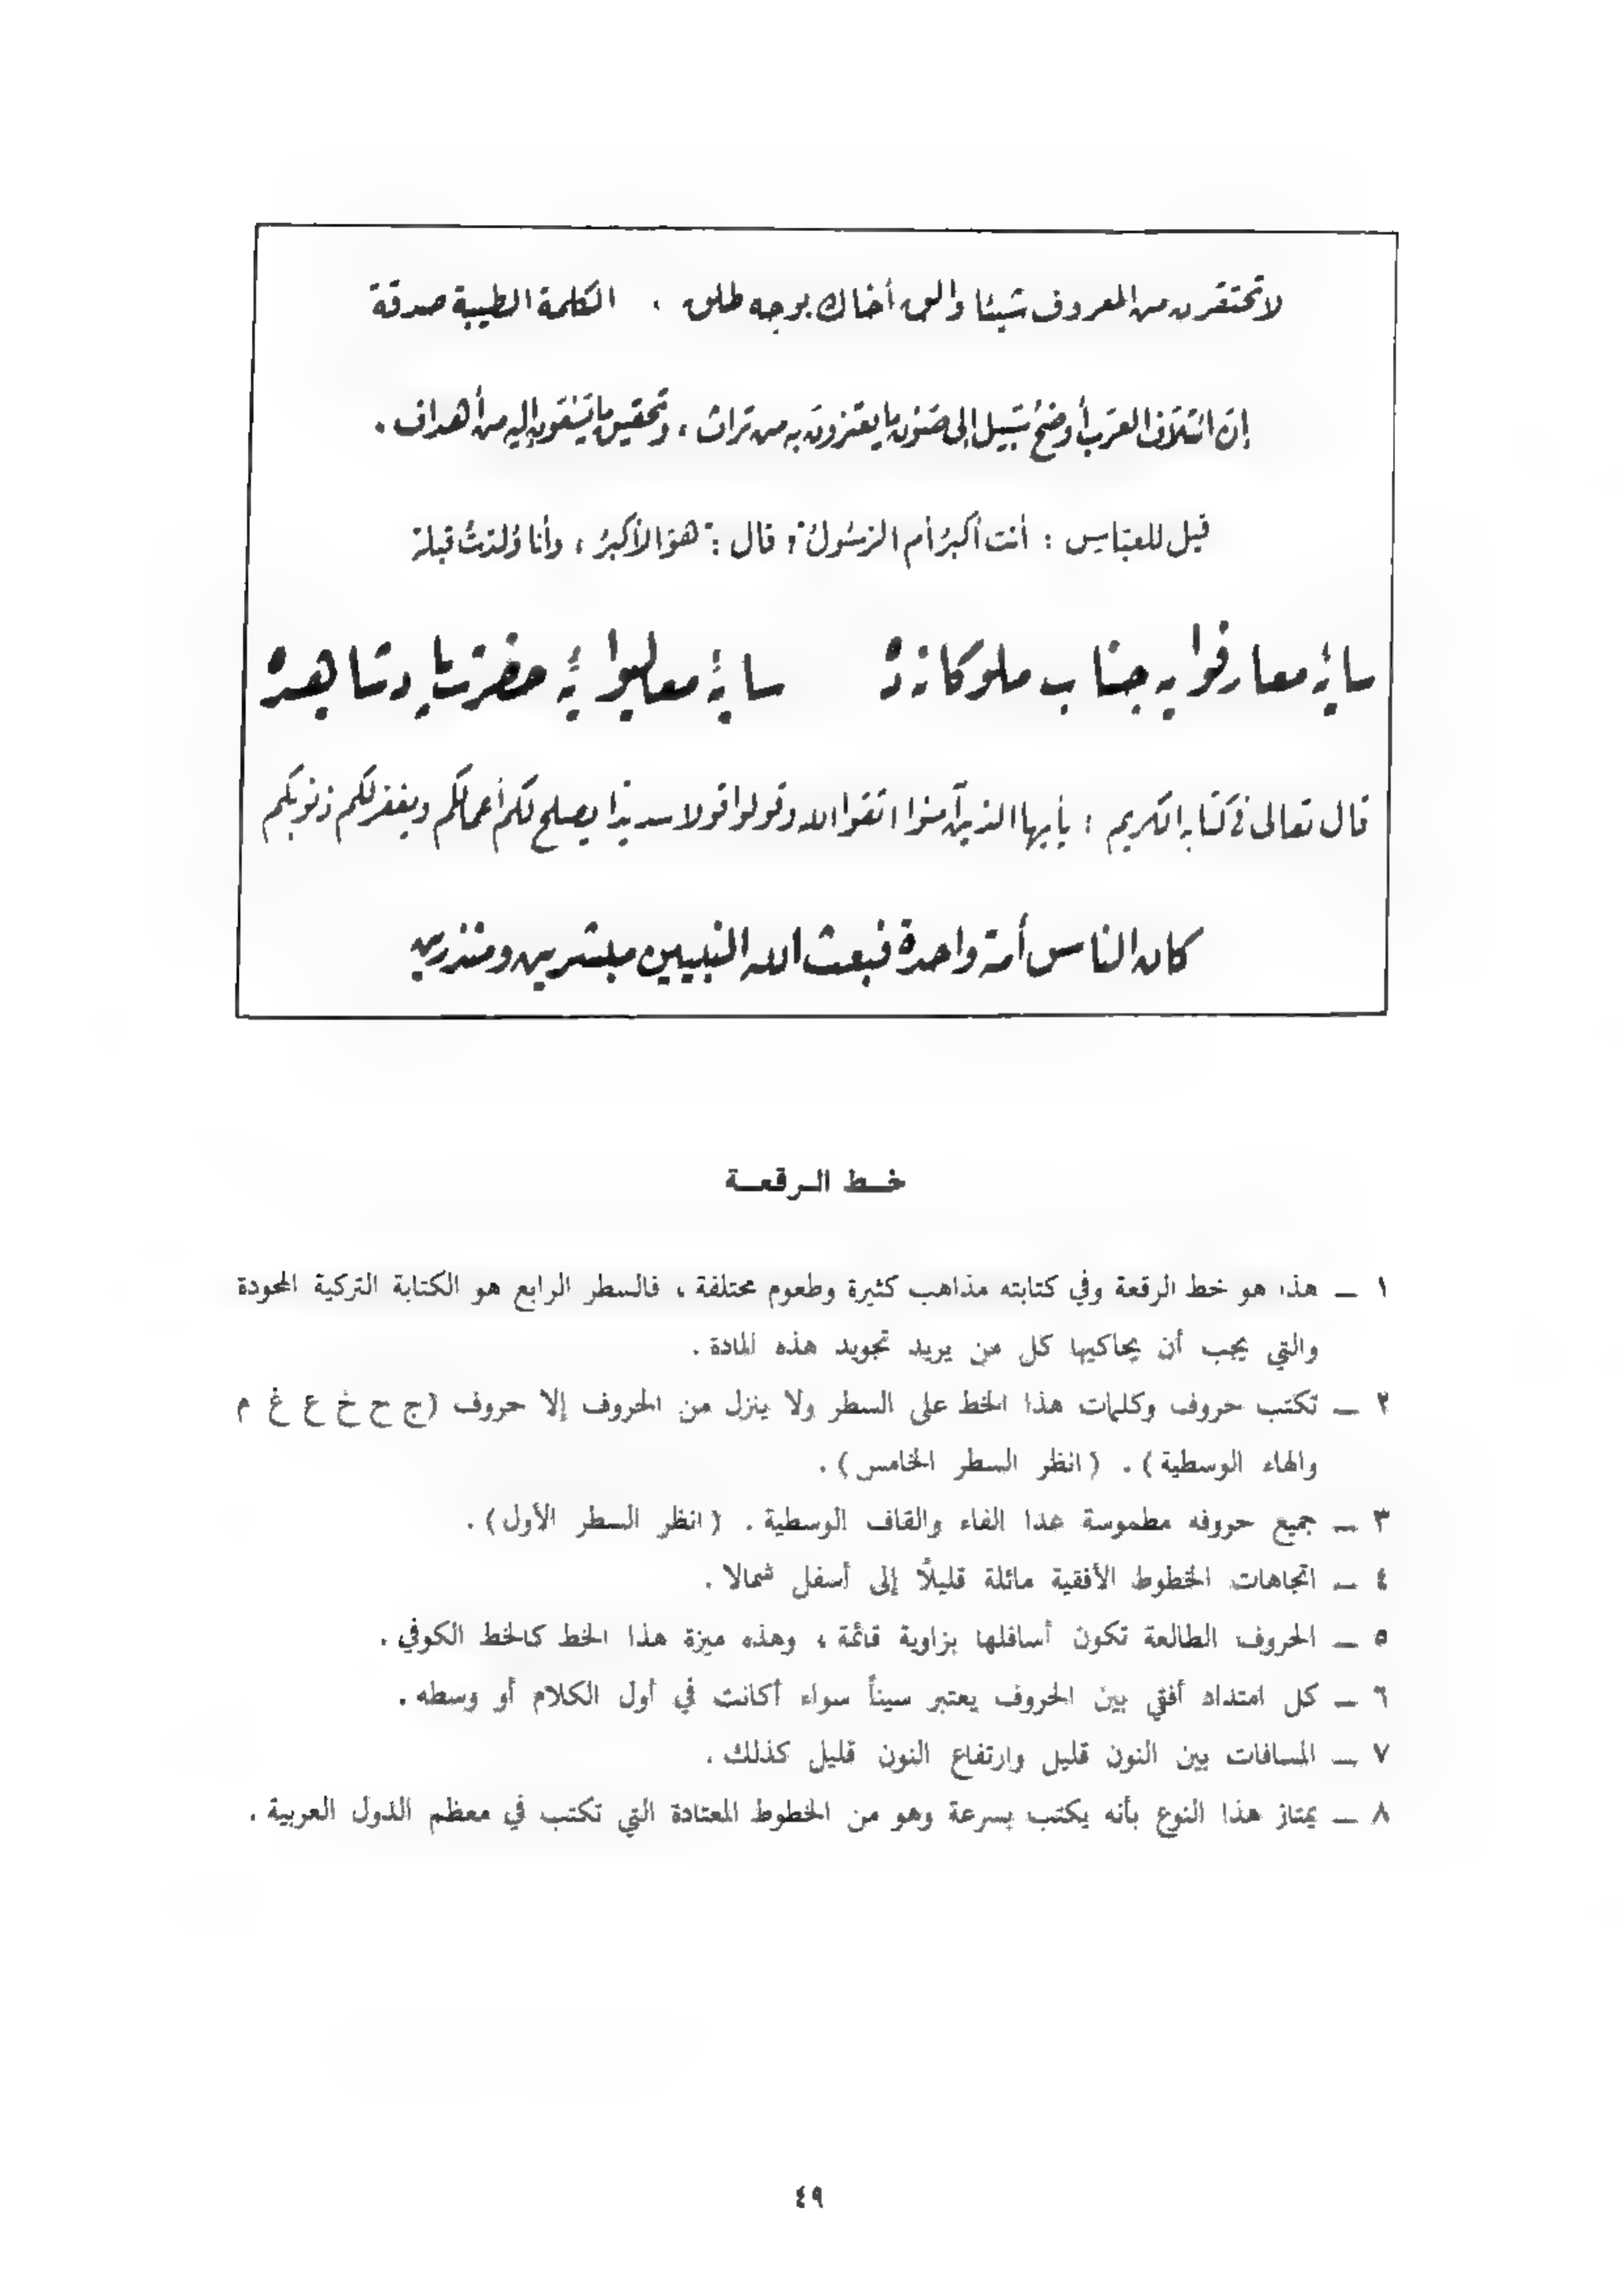 لا تحتقرن من المعروف شيئا والق أخاك بوجه طلق ، الكلمة الطيبة صدقة
إن ائتلاف العرب أوضح سبيل إلى صون ما يعتزون به من تراث ، وتحقيق ما يبتغون إليه من أهداف .
قيل للعباس : أنت أكبر أم الرسول ؟ قال : هو الأكبر ، وأنا ولدت قبله
سايۀ معارفوايه جناب ملوكانه ده سايۀ معاليوايۀ حضرت پادشاهيده
قال تعالى في كتابه الكريم : يأيها الذين آمنوا اتقوا الله وقولوا قولا سديدا يصلح لكم أعمالكم ويغفر لكم ذنوبكم
كان الناس أمة واحدة فبعث الله النبيين مبشرين ومنذرين
خط الرقعة
١ — هذا هو خط الرقعة وفي كتابته مذاهب كثيرة وطعوم مختلفة ، فالسطر الرابع هو الكتابة التركية المجودة
والتي يجب أن يحاكيها كل من يريد تجويد هذه المادة .
٢ — تكتب حروف وكلمات هذا الخط على السطر ولا ينزل من الحروف إلا حروف (ج ح خ ع غ م
والهاء الوسطية) . (انظر السطر الخامس) .
٣ — جميع حروفه مطموسة عدا الفاء والقاف الوسطية . (انظر السطر الأول) .
٤ — اتجاهات الخطوط الأفقية مائلة قليلاً إلى أسفل شمالا .
٥ — الحروف الطالعة تكون أسافلها بزاوية قائمة ، وهذه ميزة هذا الخط كالخط الكوفي .
٦ — كل امتداد أفقي بين الحروف يعتبر سيناً سواء أكانت في أول الكلام أو وسطه .
٧ — المسافات بين النون قليل وارتفاع النون قليل كذلك .
٨ — يمتاز هذا النوع بأنه يكتب بسرعة وهو من الخطوط المعتادة التي تكتب في معظم الدول العربية .
٤٩